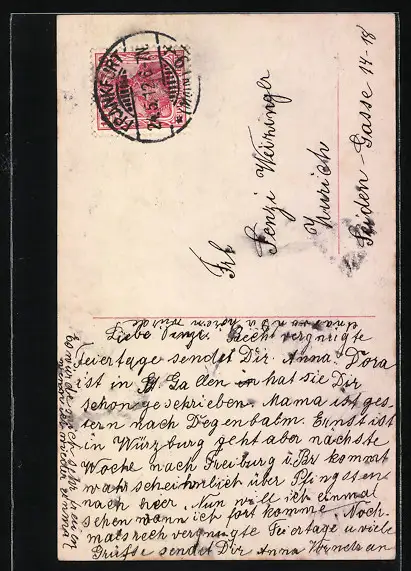 FRANKFURT
24.5.12.6-7N.
Frl
Fenzi Weininger
Zürich
Seiden-Gasse 14-18
Liebe Fenzi. Recht vergnügte
Feiertage sendet Dir Anna. Dora
ist in St Gallen hat sie Dir
schon geschrieben. Mama ist ges-
tern nach Degenbalm. Ernst ist
in Würzburg geht aber nächste
Woche nach Freiburg i. Br kommt
wahrscheinlich über Pfingsten
nach hier. Nun will ich einmal
sehen wann ich fort komme. Noch-
mals rech vergnügte Feiertage u viele
Grüsse sendet Dir Anna
es würde mich sehr freuen
wenn ich wieder einmal
etwas von Dir hören würde